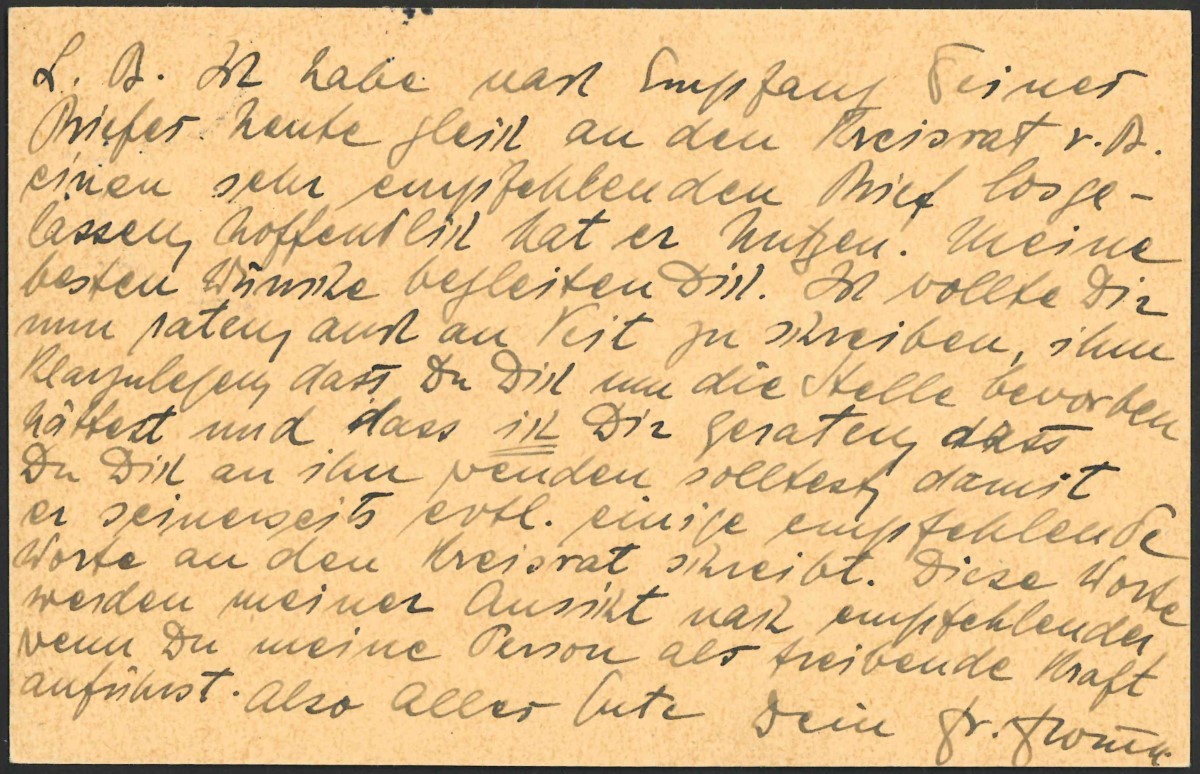 L. B. Ich habe nach Empfang Deines
Briefes heute gleich an den Kreisrat v. B.
einen sehr empfehlenden Brief losge-
lassen, hoffentlich hat er Nutzen. Meine
besten Wünsche begleiten Dich. Ich wollte Dir
nun raten, auch an Veit zu schreiben, ihm
klarzulegen, dass Du Dich um die Stelle beworben
hättest und dass ich Dir geraten, dass
Du Dich an ihn wenden solltest, damit
er seinerseits evtl. einige empfehlende
Worte an den Kreisrat schreibt. Diese Worte
werden meiner Ansicht nach empfehlender
wenn Du meine Person als treibende Kraft
anführst. Also Alles Gute Dein Fr.